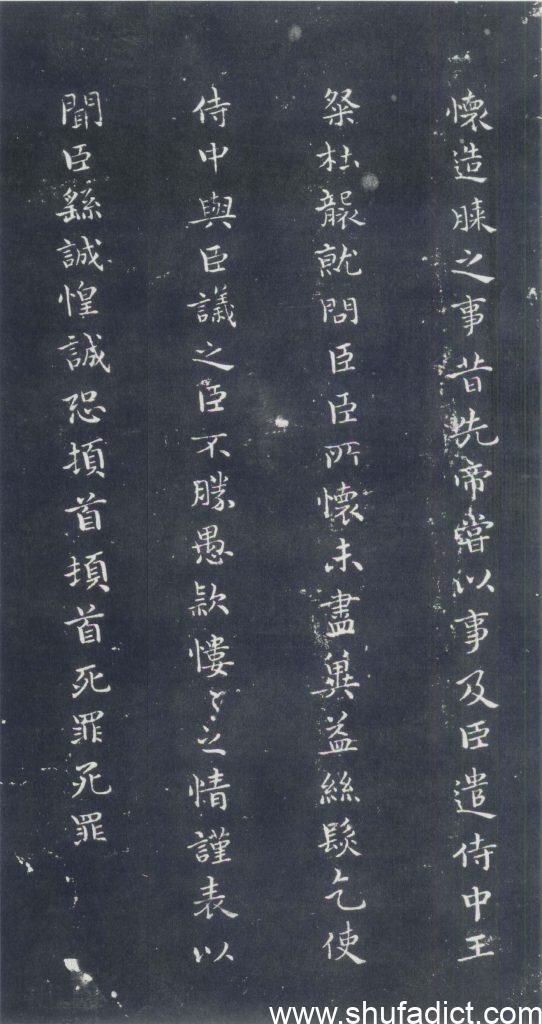 懷造膝之事昔先帝嘗以事及臣遣侍中王
粲杜襲就問臣臣所懷未盡冀益絲髮乞使
侍中與臣議之臣不勝愚款慺慺之情謹表以
聞臣繇誠惶誠恐頓首頓首死罪死罪
www.shufadict.com